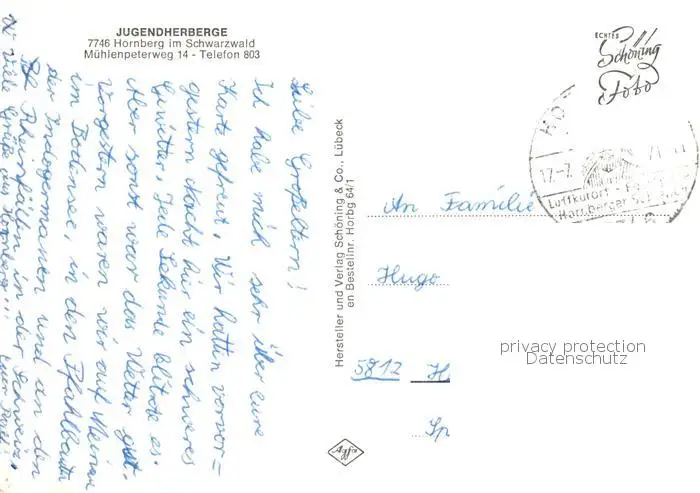 JUGENDHERBERGE
7746 Hornberg im Schwarzwald
Mühlenpeterweg 14 - Telefon 803
Liebe Großeltern!
Ich habe mich sehr über eure
Karte gefreut. Wir hatten vorvor=
gestern Nacht hier ein schweres
Gewitter. Jede Sekunde blitzte es.
Aber sonst war das Wetter gut.
Vorgestern waren wir auf Meinau
im Bodensee, in den Pfahlbauten
der Indogermanen und an den
Rheinfällen in der Schweiz.
Viele Grüße aus Hornberg!!! Euer
Hersteller und Verlag Schöning & Co., Lübeck
en Bestellnr. Horbg 64/1
ECHTES
Schöning
Foto
17.-7.
Luftkurort
Hornberger
An Familie
Hugo
5812 H
Sp
Agfa
privacy protection
Datenschutz